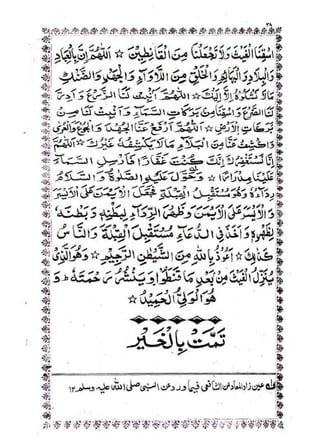 ٢٨
اسْقِنَا الْغَيْثَ وَلَا تَجْعَلْنَا مِنَ الْقَانِطِيْنَ ☆ اَللّٰهُمَّ اِنَّ بِالْعِبَادِ
وَالْبِلَادِ وَالْبَهَائِمِ وَالْخَلْقِ مِنَ اللَّأْوَاءِ وَالْجَهْدِ وَالضَّنْكِ
مَالَا نَشْكُوْهُ اِلَّا اِلَيْكَ ☆ اَللّٰهُمَّ اَنْۢبِتْ لَنَا الزَّرْعَ وَاَدِرَّ
لَنَا الضَّرْعَ وَاسْقِنَا مِنْ بَرَكَاتِ السَّمَاءِ وَاَنْۢبِتْ لَنَا مِنْ
بَرَكَاتِ الْاَرْضِ ☆ اَللّٰهُمَّ ارْفَعْ عَنَّا الْجَهْدَ وَالْجُوْعَ وَالْعُرٰى
وَاكْشِفْ عَنَّا مِنَ الْبَلَاءِ مَا لَا يَكْشِفُهٗ غَيْرُكَ ☆ اَللّٰهُمَّ
اِنَّا نَسْتَغْفِرُكَ اِنَّكَ كُنْتَ غَفَّارًا فَاَرْسِلِ السَّمَاءَ
عَلَيْنَا مِدْرَارًا ☆ وَتَحَوَّلَ عَلَيْهِ الصَّلٰوةُ وَالسَّلَامُ
رِدَاءَهٗ وَهُوَ مُسْتَقْبِلُ الْقِبْلَةِ فَجَعَلَ الْاَيْمَنَ عَلَى الْاَيْسَرِ
وَالْاَيْسَرَ عَلَى الْاَيْمَنِ وَظَهْرَ الرِّدَاءِ لِبَطْنِهٖ وَبَطْنَهٗ
لِظَهْرِهٖ وَاَخَذَ فِي الدُّعَاءِ مُسْتَقْبِلَ الْقِبْلَةِ وَالنَّاسُ
كَذٰلِكَ ☆ اَعُوْذُ بِاللّٰهِ مِنَ الشَّيْطٰنِ الرَّجِيْمِ ☆ وَهُوَ الَّذِيْ
يُنَزِّلُ الْغَيْثَ مِنْۢ بَعْدِ مَا قَنَطُوْا وَيَنْشُرُ رَحْمَتَهٗ ط وَ
هُوَ الْوَلِيُّ الْحَمِيْدُ ☆
تَمَّتْ بِالْخَيْرِ
عن زاد المعاد عن الشافعى فيما ورد عن النبى صلى الله عليه وسلم ١٢